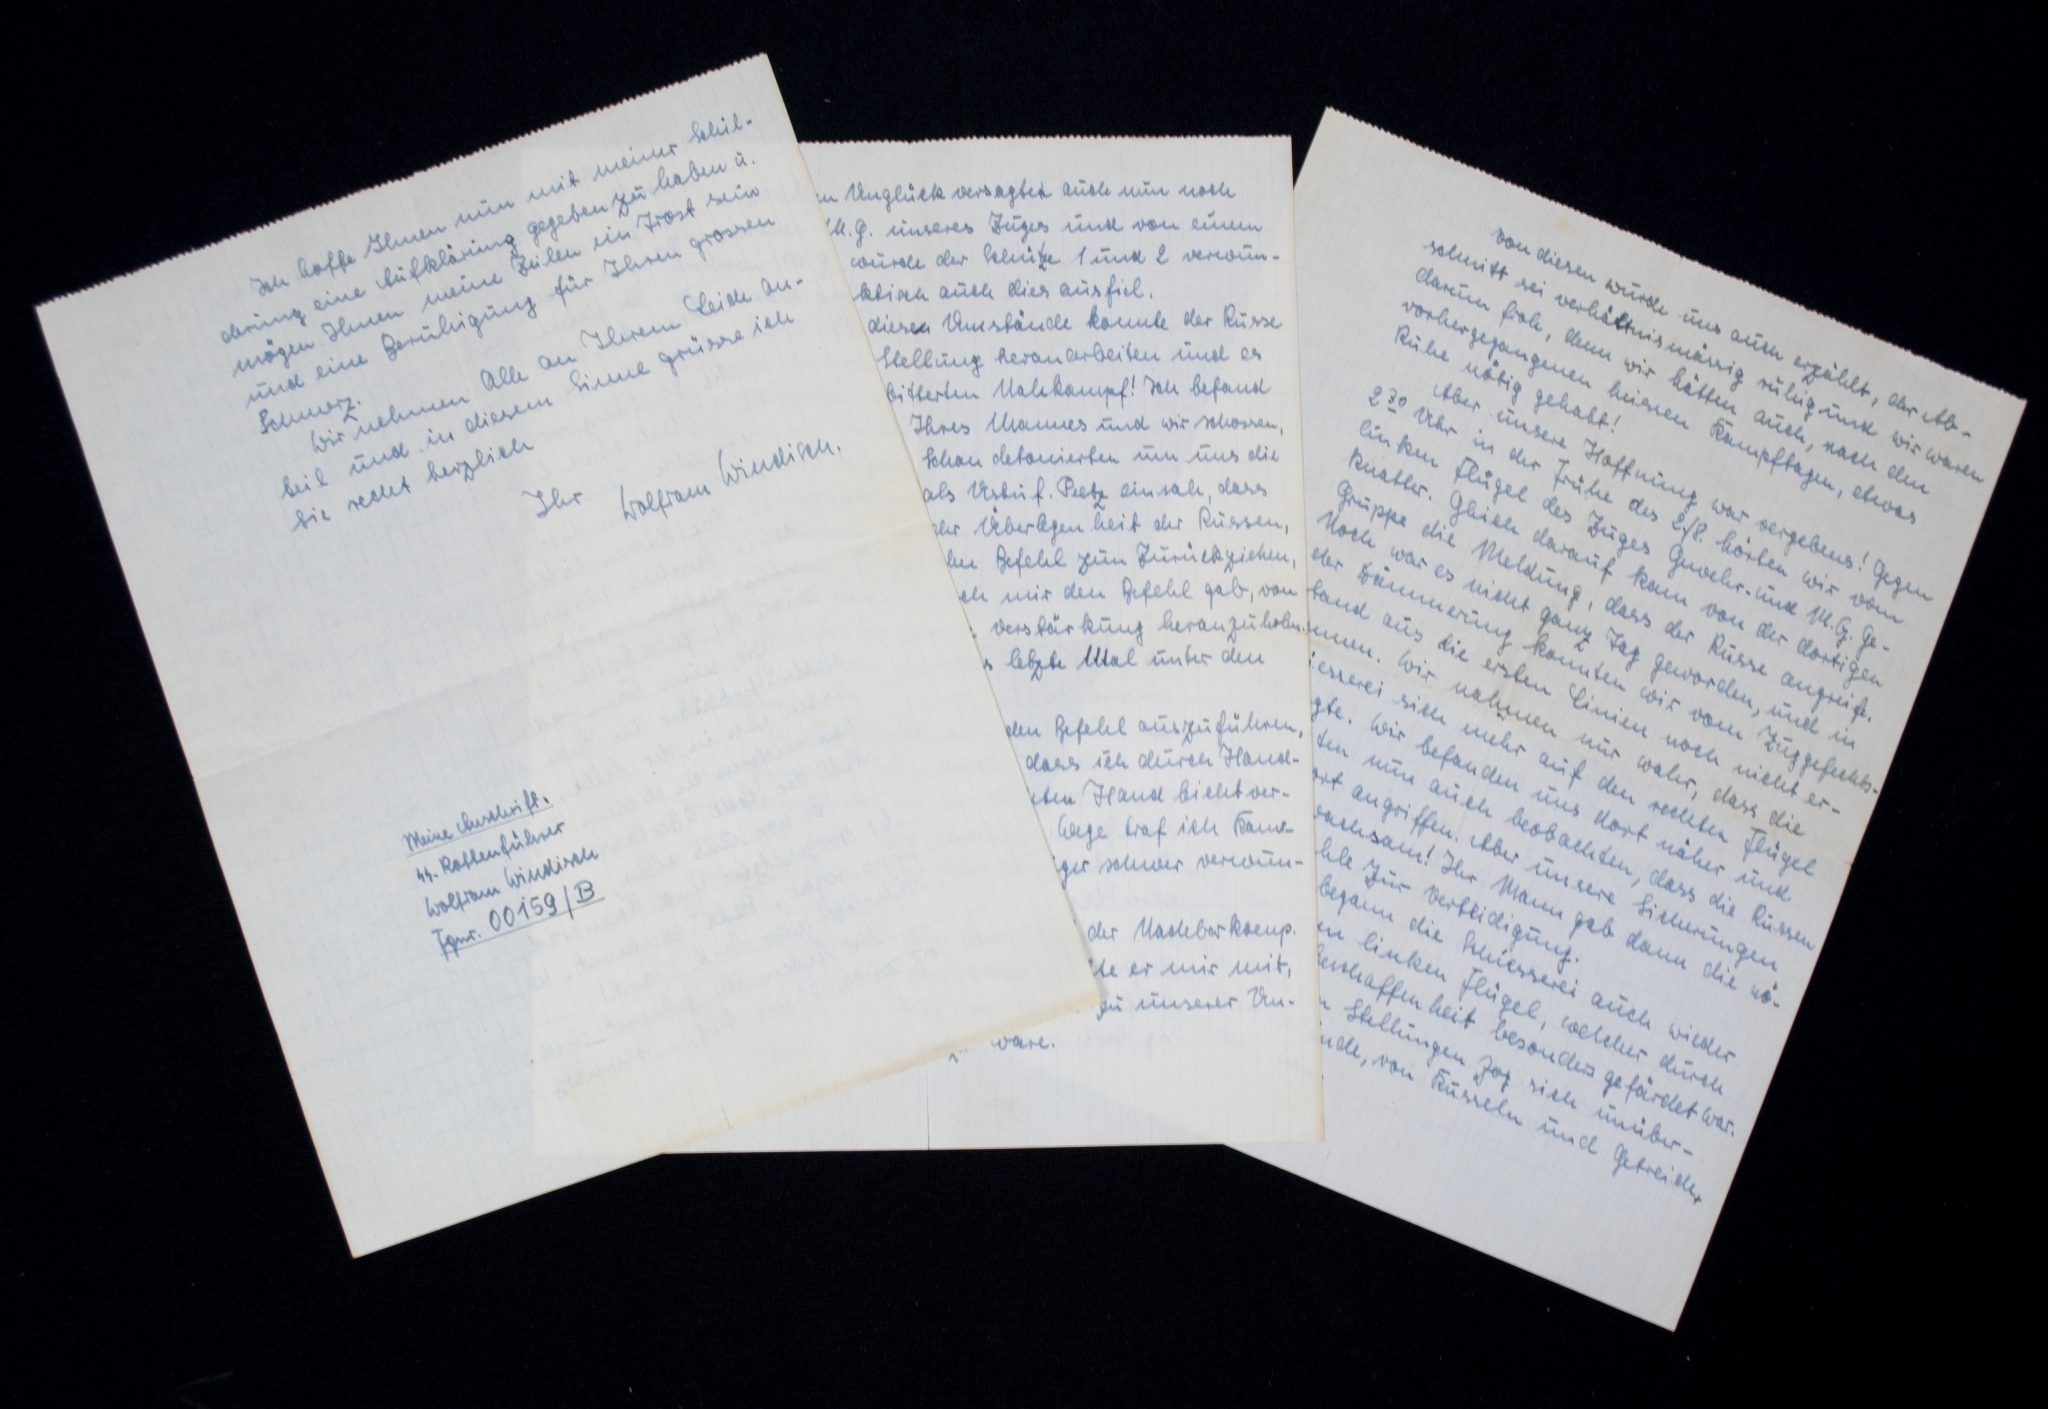 Ich hoffe Ihnen nun mit meiner Schil-
derung eine Aufklärung gegeben zu haben u.
mögen Ihnen meine Zeilen ein Trost sein
und eine Beruhigung für Ihren grossen
Schmerz.
Wir nehmen Alle an Ihrem Leide An-
teil und in diesem Sinne grüsse ich
Sie recht herzlich
Ihr Wolfram Windisch.
Meine Anschrift.
SS. Rottenführer
Wolfram Windisch
Fpnr. 00159/B
Unglück versagten auch nun noch
M.G. unseres Zuges und von einem
wurde der Schütze 1 und 2 verwun-
auch dies ausfiel.
diesen Umstände konnte der Russe
Stellung heranarbeiten und es
bitterten Nahkampf! Ich befand
Ihres Mannes und wir schossen,
Schon detonierten um uns die
als Ustuf. Peetz einsah, dass
der Überlegenheit der Russen,
den Befehl zum Zurückziehen,
ch mir den Befehl gab, von
Verstärkung heranzuholen.
s letzte Mal unter den
den Befehl auszuführen,
dass ich durch Hand-
hten Hand leicht ver-
Wege traf ich Kame-
iger schwer verwun-
der Nachbarkomp.
te er mir mit,
zu unserer Un-
wäre.
Von diesen wurde uns auch erzählt, der Ab-
schnitt sei verhältnismässig ruhig und wir waren
darum froh, denn wir hätten auch, nach den
vorhergegangenen heissen Kampftagen, etwas
Ruhe nötig gehabt!
Aber unsere Hoffnung war vergebens! Gegen
2 30 Uhr in der Frühe des 2/8. hörten wir vom
linken Flügel des Zuges Gewehr- und M.G. Ge-
knatter. Gleich darauf kam von der dortigen
Gruppe die Meldung, dass der Russe angreife.
Noch war es nicht ganz Tag geworden, und in
der Dämmerung konnten wir vom Zuggefechts-
tand aus die ersten Linien noch nicht er-
nnen. Wir nahmen nur wahr, dass die
iesserei sich mehr auf den rechten Flügel
gte. Wir befanden uns dort näher und
ten nun auch beobachten, dass die Russen
ort angriffen. Aber unsere Sicherungen
wachsam! Ihr Mann gab dann die nö-
hle zur Verteidigung.
begann die Schiesserei auch wieder
linken Flügel, welcher durch
beschaffenheit besonders gefärdet war.
Stellungen zog sich unüber-
nde, von Kusseln und Getreide,